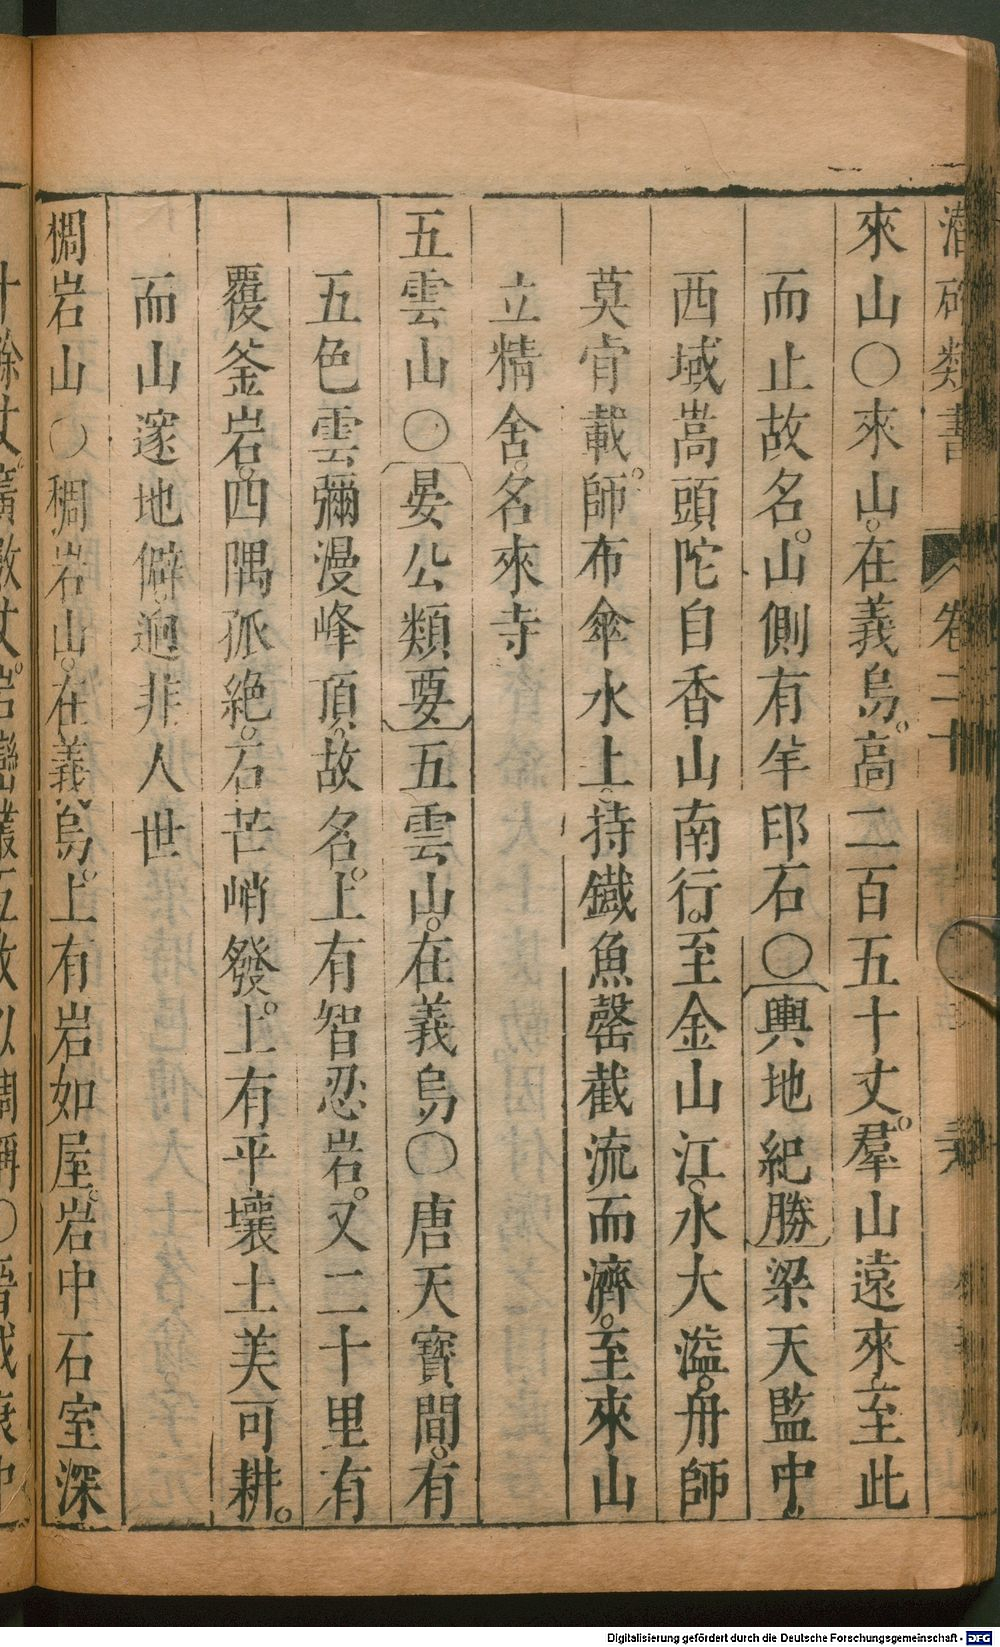 潛確類書 卷二十
來山〇來山。在義烏。高二百五十丈。羣山遠來至此
而止故名。山側有羊印石〇輿地紀勝梁天監中。
西域嵩頭陀自香山南行。至金山江。水大溢。舟師
莫肯載。師布傘水上。持鐵魚罄截流而濟。至來山
立精舍。名來寺
五雲山〇晏公類要五雲山。在義烏〇唐天寶間。有
五色雲彌漫峰頂。故名。上有智忍岩。又二十里有
覆釜岩。四隅孤絶。石芒峭發。上有平壤土美可耕。
而山邃地僻逈非人世
稠岩山〇稠岩山。在義烏。上有岩如屋。岩中石室深
十餘丈。廣數丈。岩巒叢
Digitalisierung gefördert durch die Deutsche Forschungsgemeinschaft - DFG